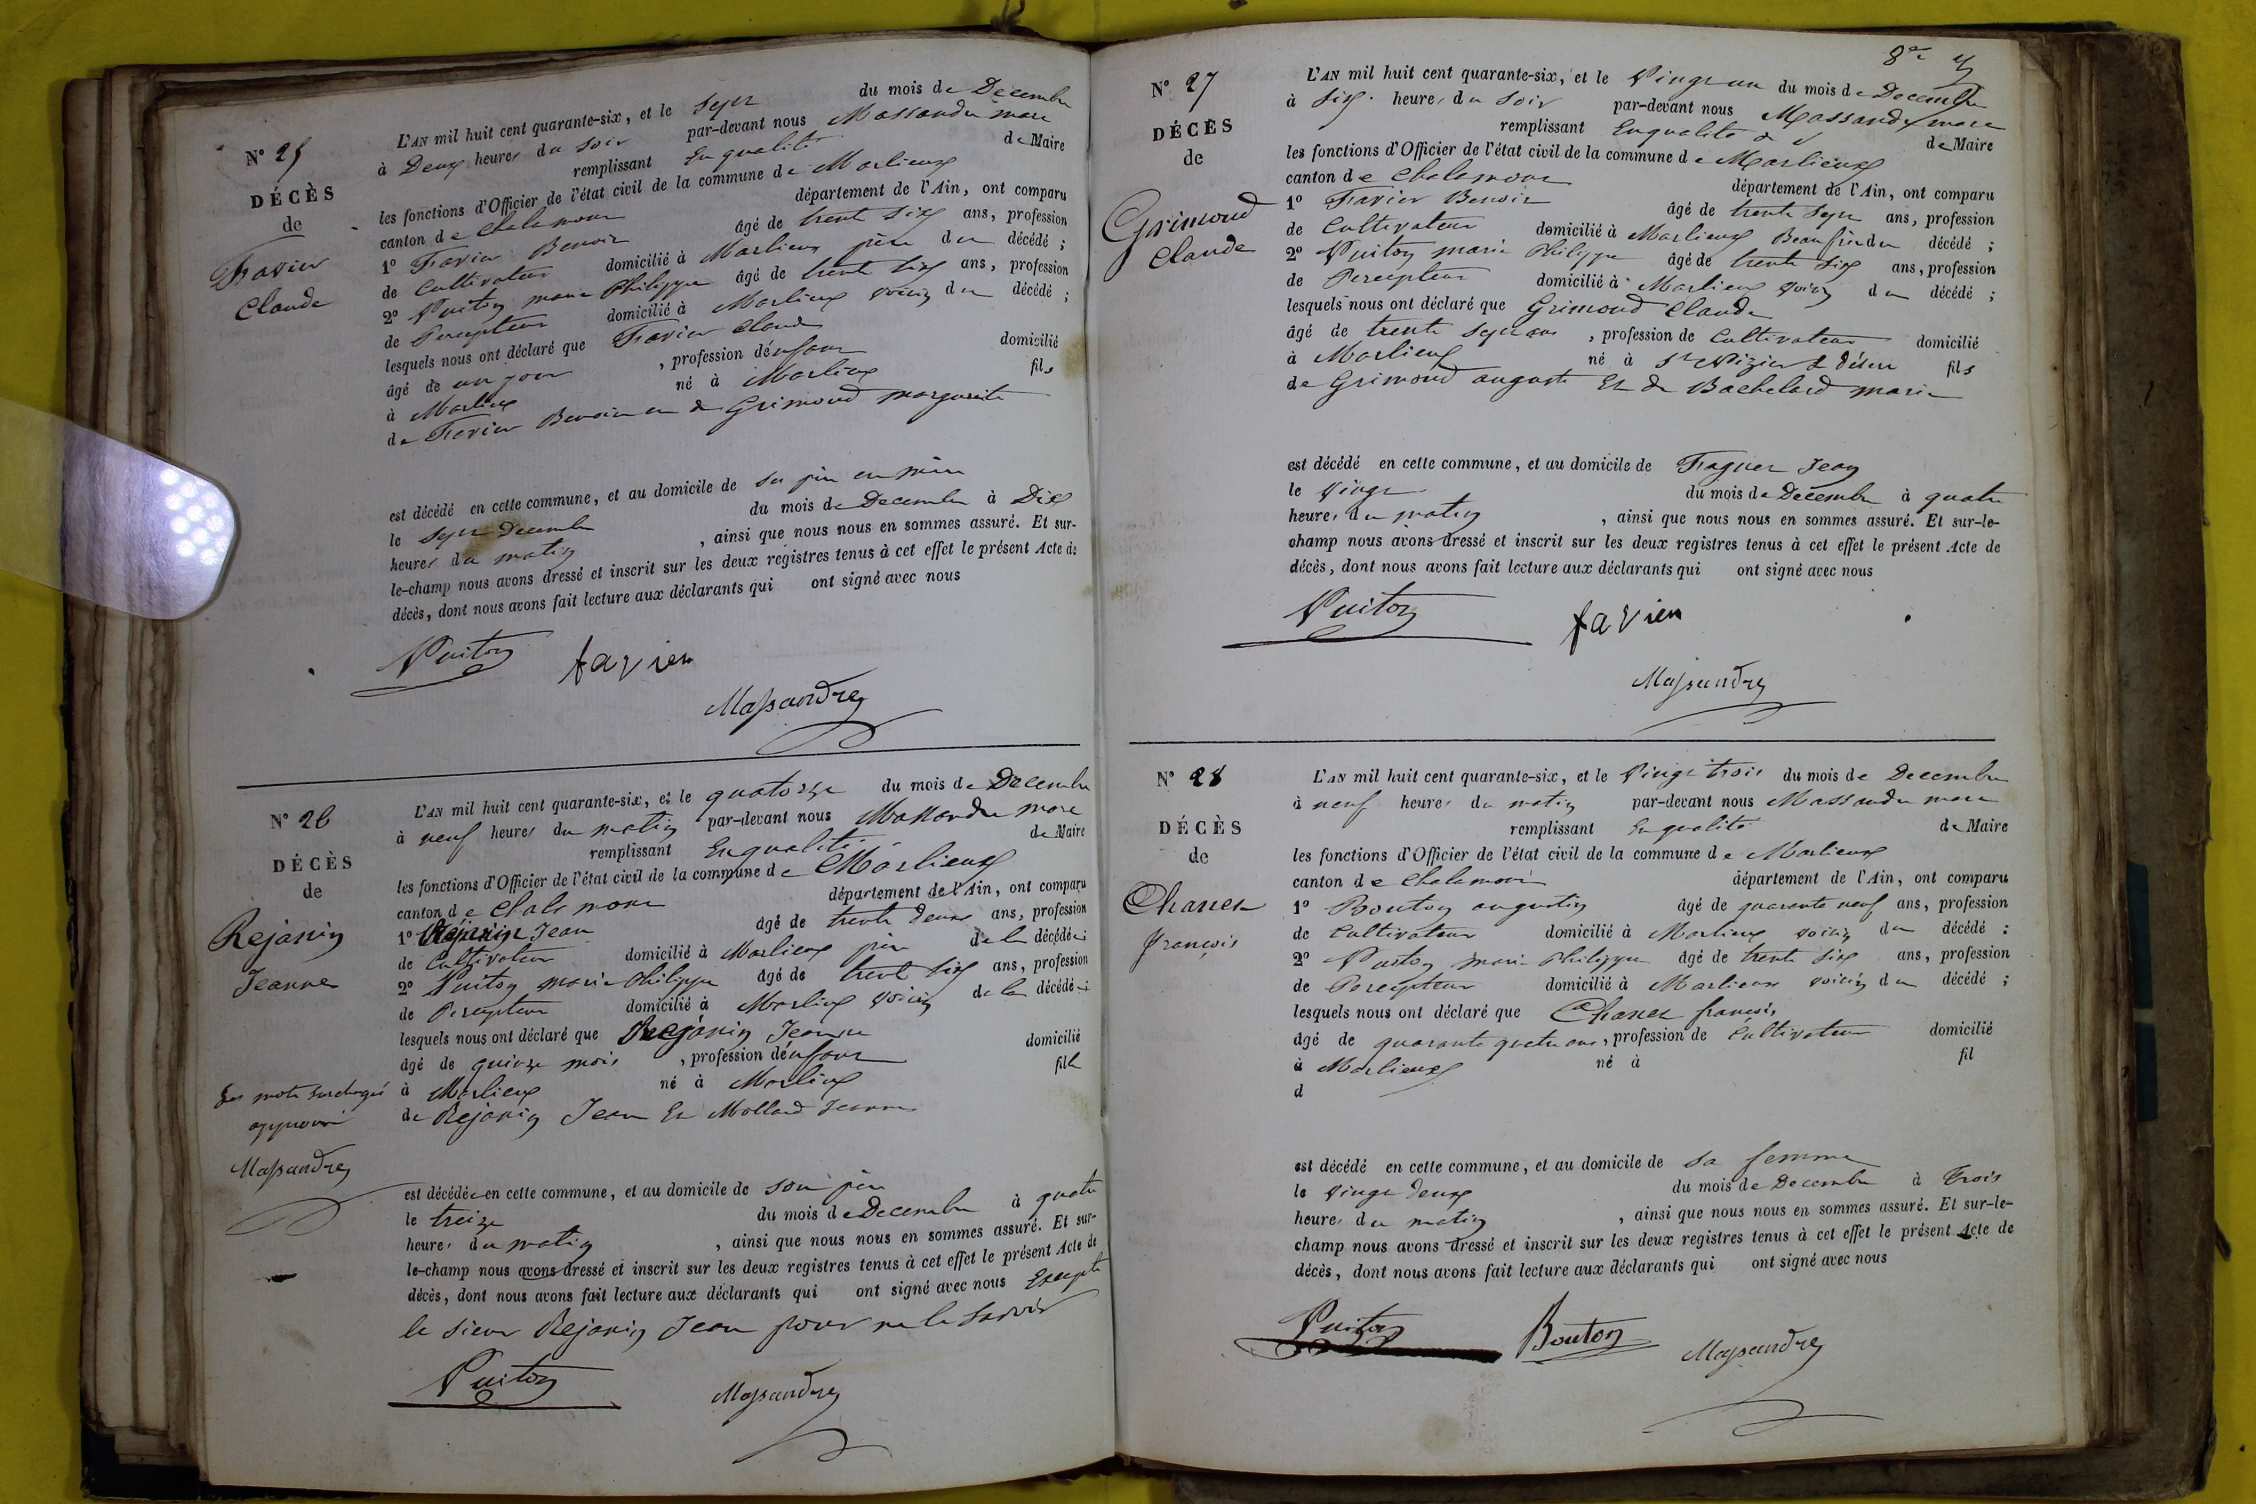 N° 25
DÉCÈS
de
Favier
Claude
L'AN mil huit cent quarante-six, et le sept du mois de Decembre
à Deux heures du soir par-devant nous Massandre marc
remplissant En qualité de Maire
les fonctions d'Officier de l'état civil de la commune de Marlieux
canton de Chalamont département de l'Ain, ont comparu
1° Favier Benoit âgé de trente six ans, profession
de Cultivateur domicilié à Marlieux père du décédé ;
2° Puiton marie Philippe âgé de trente six ans, profession
de Percepteur domicilié à Marlieux voisin du décédé ;
lesquels nous ont déclaré que Favier Claude
âgé de un jour , profession d'enfant domicilié
à Marlieux né à Marlieux fils
de Favier Benoit et de Grimoud marguerite
est décédé en cette commune, et au domicile de ses père et mère
le sept Decembre du mois de Decembre à Dix
heures du matin , ainsi que nous nous en sommes assuré. Et sur-
le-champ nous avons dressé et inscrit sur les deux registres tenus à cet effet le présent Acte de
décès, dont nous avons fait lecture aux déclarants qui ont signé avec nous
Puiton favier
Massandre
N° 26
DÉCÈS
de
Rejanin
Jeanne
L'AN mil huit cent quarante-six, et le quatorze du mois de Decembre
à neuf heures du matin par-devant nous Massandre marc
remplissant En qualité de Maire
les fonctions d'Officier de l'état civil de la commune de Marlieux
canton de Chalamont département de l'Ain, ont comparu
1° Rejanin Jean âgé de trente deux ans, profession
de Cultivateur domicilié à Marlieux père de la décédée ;
2° Puiton marie Philippe âgé de trente six ans, profession
de Percepteur domicilié à Marlieux voisin de la décédée ;
lesquels nous ont déclaré que Rejanin Jeanne
âgé de quinze mois , profession d'enfant domicilié
à Marlieux né à Marlieux fille
de Rejanin Jean Et Mollard Jeanne
Les mots surchargés
approuvé
Massandre
est décédée en cette commune, et au domicile de son père
le treize du mois de Decembre à quatre
heures du matin , ainsi que nous nous en sommes assuré. Et sur-
le-champ nous avons dressé et inscrit sur les deux registres tenus à cet effet le présent Acte de
décès, dont nous avons fait lecture aux déclarants qui ont signé avec nous Excepté
le sieur Rejanin Jean pour ne le savoir
Puiton Massandre
N° 27
DÉCÈS
de
Grimoud
Claude
L'AN mil huit cent quarante-six, et le Vingt un du mois de Decembre
à six heures du soir par-devant nous Massandre marc
remplissant En qualité de Maire
les fonctions d'Officier de l'état civil de la commune de Marlieux
canton de Chalamont département de l'Ain, ont comparu
1° Favier Benoit âgé de trente sept ans, profession
de Cultivateur domicilié à Marlieux Beau frère du décédé ;
2° Puiton marie Philippe âgé de trente six ans, profession
de Percepteur domicilié à Marlieux voisin du décédé ;
lesquels nous ont déclaré que Grimoud Claude
âgé de trente sept ans , profession de Cultivateur domicilié
à Marlieux né à St Nizier le désert fils
de Grimoud auguste Et de Bachelard marie
est décédé en cette commune, et au domicile de Jean
le vingt du mois de Decembre à quatre
heures du matin , ainsi que nous nous en sommes assuré. Et sur-le-
champ nous avons dressé et inscrit sur les deux registres tenus à cet effet le présent Acte de
décès, dont nous avons fait lecture aux déclarants qui ont signé avec nous
Puiton favier
Massandre
N° 28
DÉCÈS
de
Chanel
François
L'AN mil huit cent quarante-six, et le Vingt trois du mois de Decembre
à neuf heures du matin par-devant nous Massandre marc
remplissant En qualité de Maire
les fonctions d'Officier de l'état civil de la commune de Marlieux
canton de Chalamont département de l'Ain, ont comparu
1° Bouton augustin âgé de quarante neuf ans, profession
de Cultivateur domicilié à Marlieux voisin du décédé ;
2° Puiton marie Philippe âgé de trente six ans, profession
de Percepteur domicilié à Marlieux voisin du décédé ;
lesquels nous ont déclaré que Chanel françois
âgé de quarante quatre ans, profession de Cultivateur domicilié
à Marlieux né à fil
d
est décédé en cette commune, et au domicile de sa femme
le vingt deux du mois de Decembre à Trois
heures du matin , ainsi que nous nous en sommes assuré. Et sur-le-
champ nous avons dressé et inscrit sur les deux registres tenus à cet effet le présent Acte de
décès, dont nous avons fait lecture aux déclarants qui ont signé avec nous
Puiton Bouton Massandre